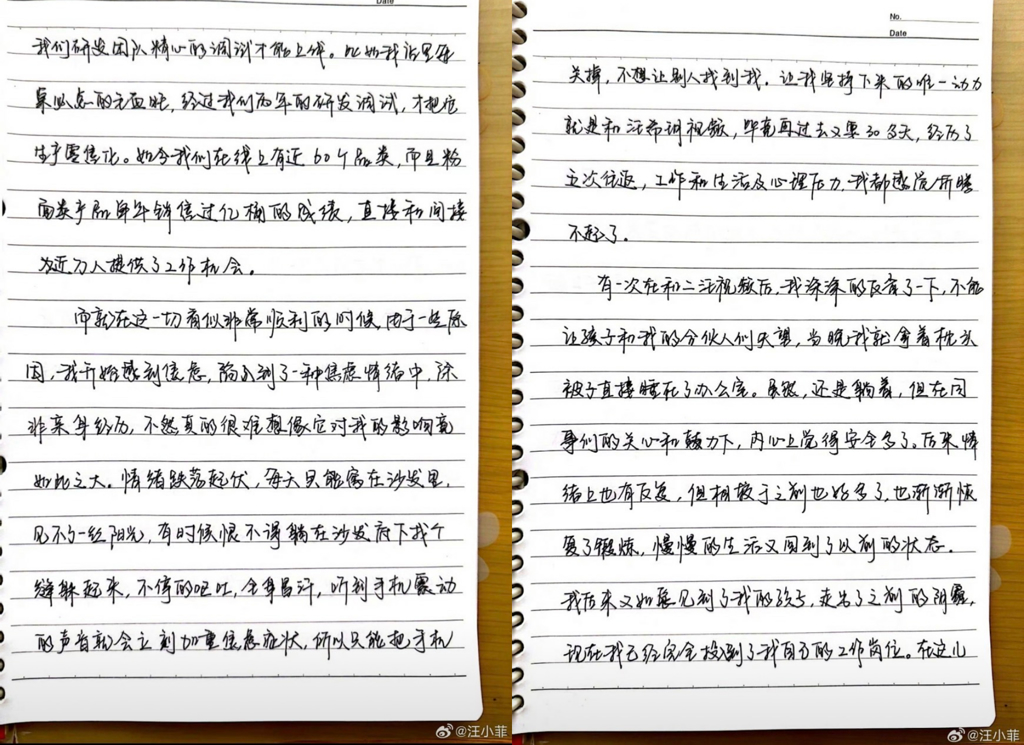 Date
我们研发团队精心的调试才能上线。比如我店里每
桌必点的毛血旺，经过我们两年的研发调试，才把它
生产零售化。如今我们在线上有近60个品类，而且粉
面类产品每年销售过亿桶的成绩，直接和间接
为近万人提供了工作机会。
而就在这一切看似非常顺利的时候，由于一些原
因，我开始感到焦虑，陷入到了一种焦虑情绪中，除
非亲身经历，不然真的很难想像它对我的影响竟
如此之大。情绪跌荡起伏，每天只能窝在沙发里，
见不了一丝阳光，有时候恨不得躺在沙发底下找个
缝躲起来，不停的呕吐，全身冒汗，听到手机震动
的声音就会立刻加重焦虑症状，所以只能把手机
No.
Date
关掉，不想让别人找到我。让我坚持下来的唯一动力
就是和汪希玥视频，毕竟再过去又要30多天，经历了
五次往返，工作和生活及心理压力，我都感觉听瞎
不起了。
有一次在和二汪视频后，我深深的反省了一下，不能
让孩子和我的合伙人们失望，当晚我就拿着枕头
被子直接睡在了办公室。虽然，还是躺着，但在同
事们的关心和鼓力下，内心上觉得安全多了。后来情
绪上也有反复，但相较于之前也好多了，也渐渐恢
复了锻炼，慢慢的生活又回到了以前的状态。
我后来又如愿见到了我的孩子，走出了之前的阴霾，
现在我已经完全投到了我自己的工作岗位。在这儿
@汪小菲
@汪小菲